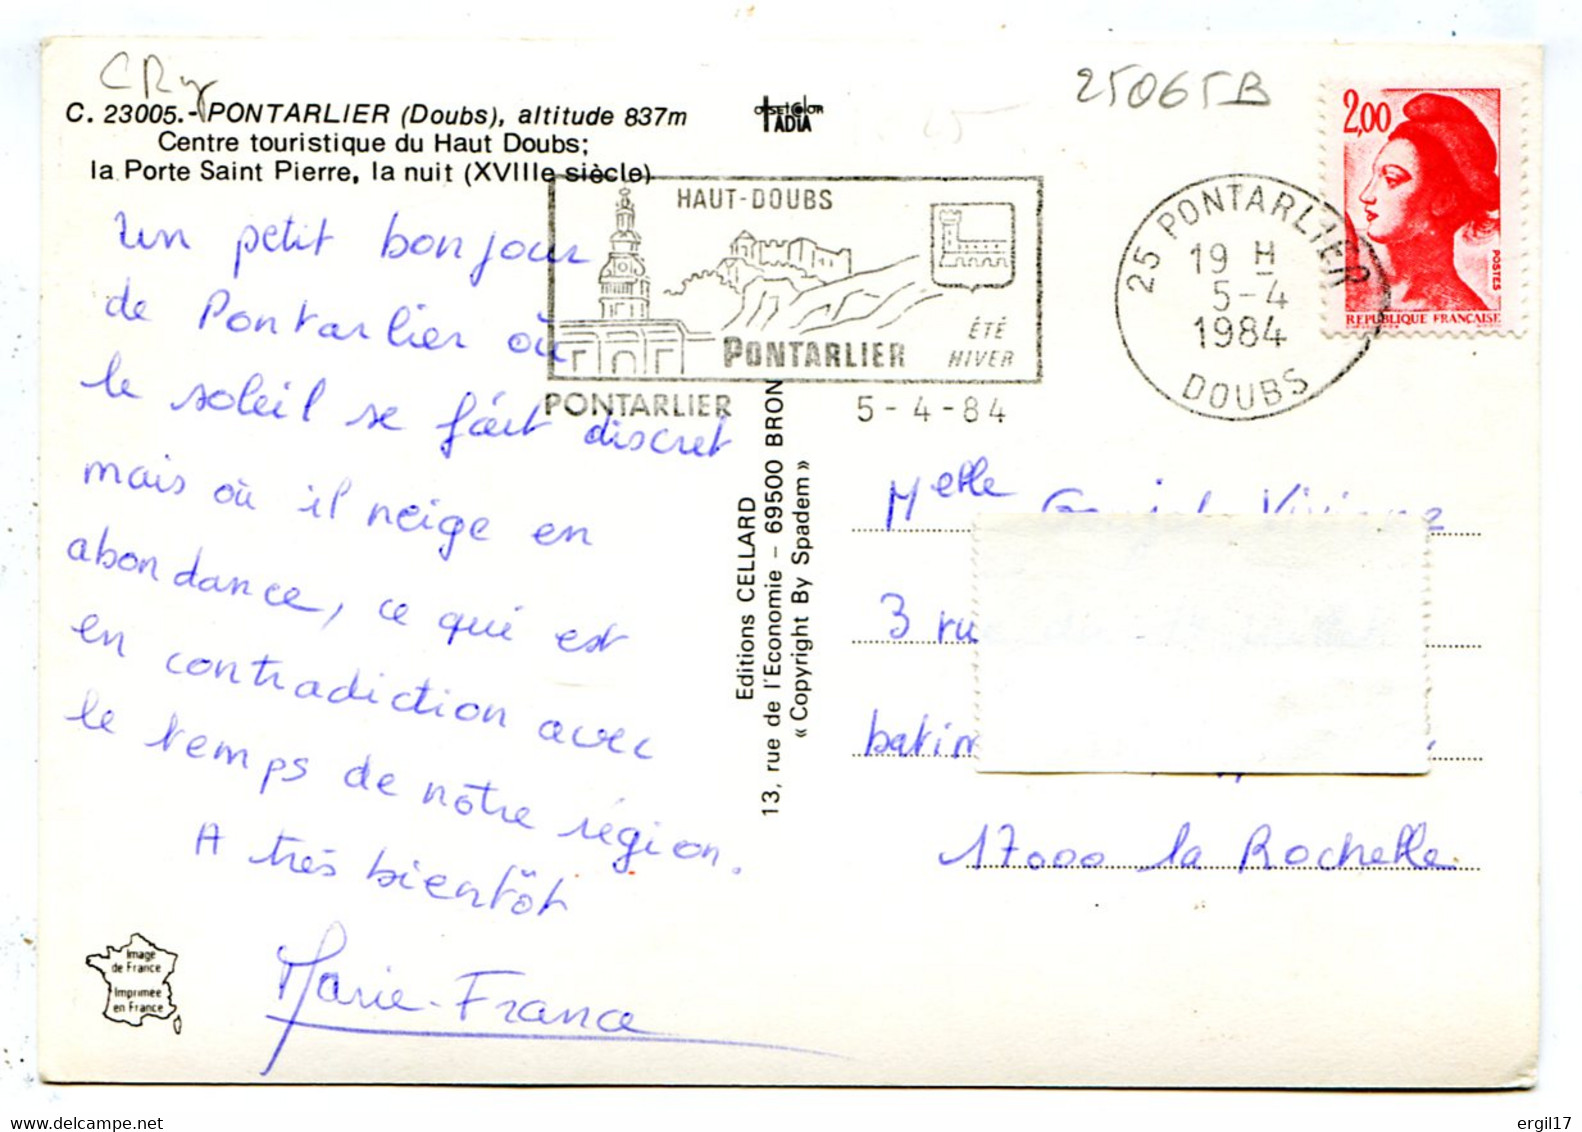 C. 23005.- PONTARLIER (Doubs), altitude 837m
Centre touristique du Haut Doubs;
la Porte Saint Pierre, la nuit (XVIIIe siècle)
Un petit bonjour
de Pontarlier où
le soleil se fait discret
mais où il neige en
abondance, ce qui est
en contradiction avec
le temps de notre région.
A très bientôt
Marie-France
Image
de France
Imprimée
en France
Editions CELLARD
13, rue de l'Economie – 69500 BRON
« Copyright By Spadem »
HAUT-DOUBS
PONTARLIER
ÉTÉ
HIVER
PONTARLIER 5-4-84
25065B
25 PONTARLIER
19 H
5-4
1984
DOUBS
2,00
POSTES
REPUBLIQUE FRANÇAISE
Melle
3 rue
17000 la Rochelle
ergil17